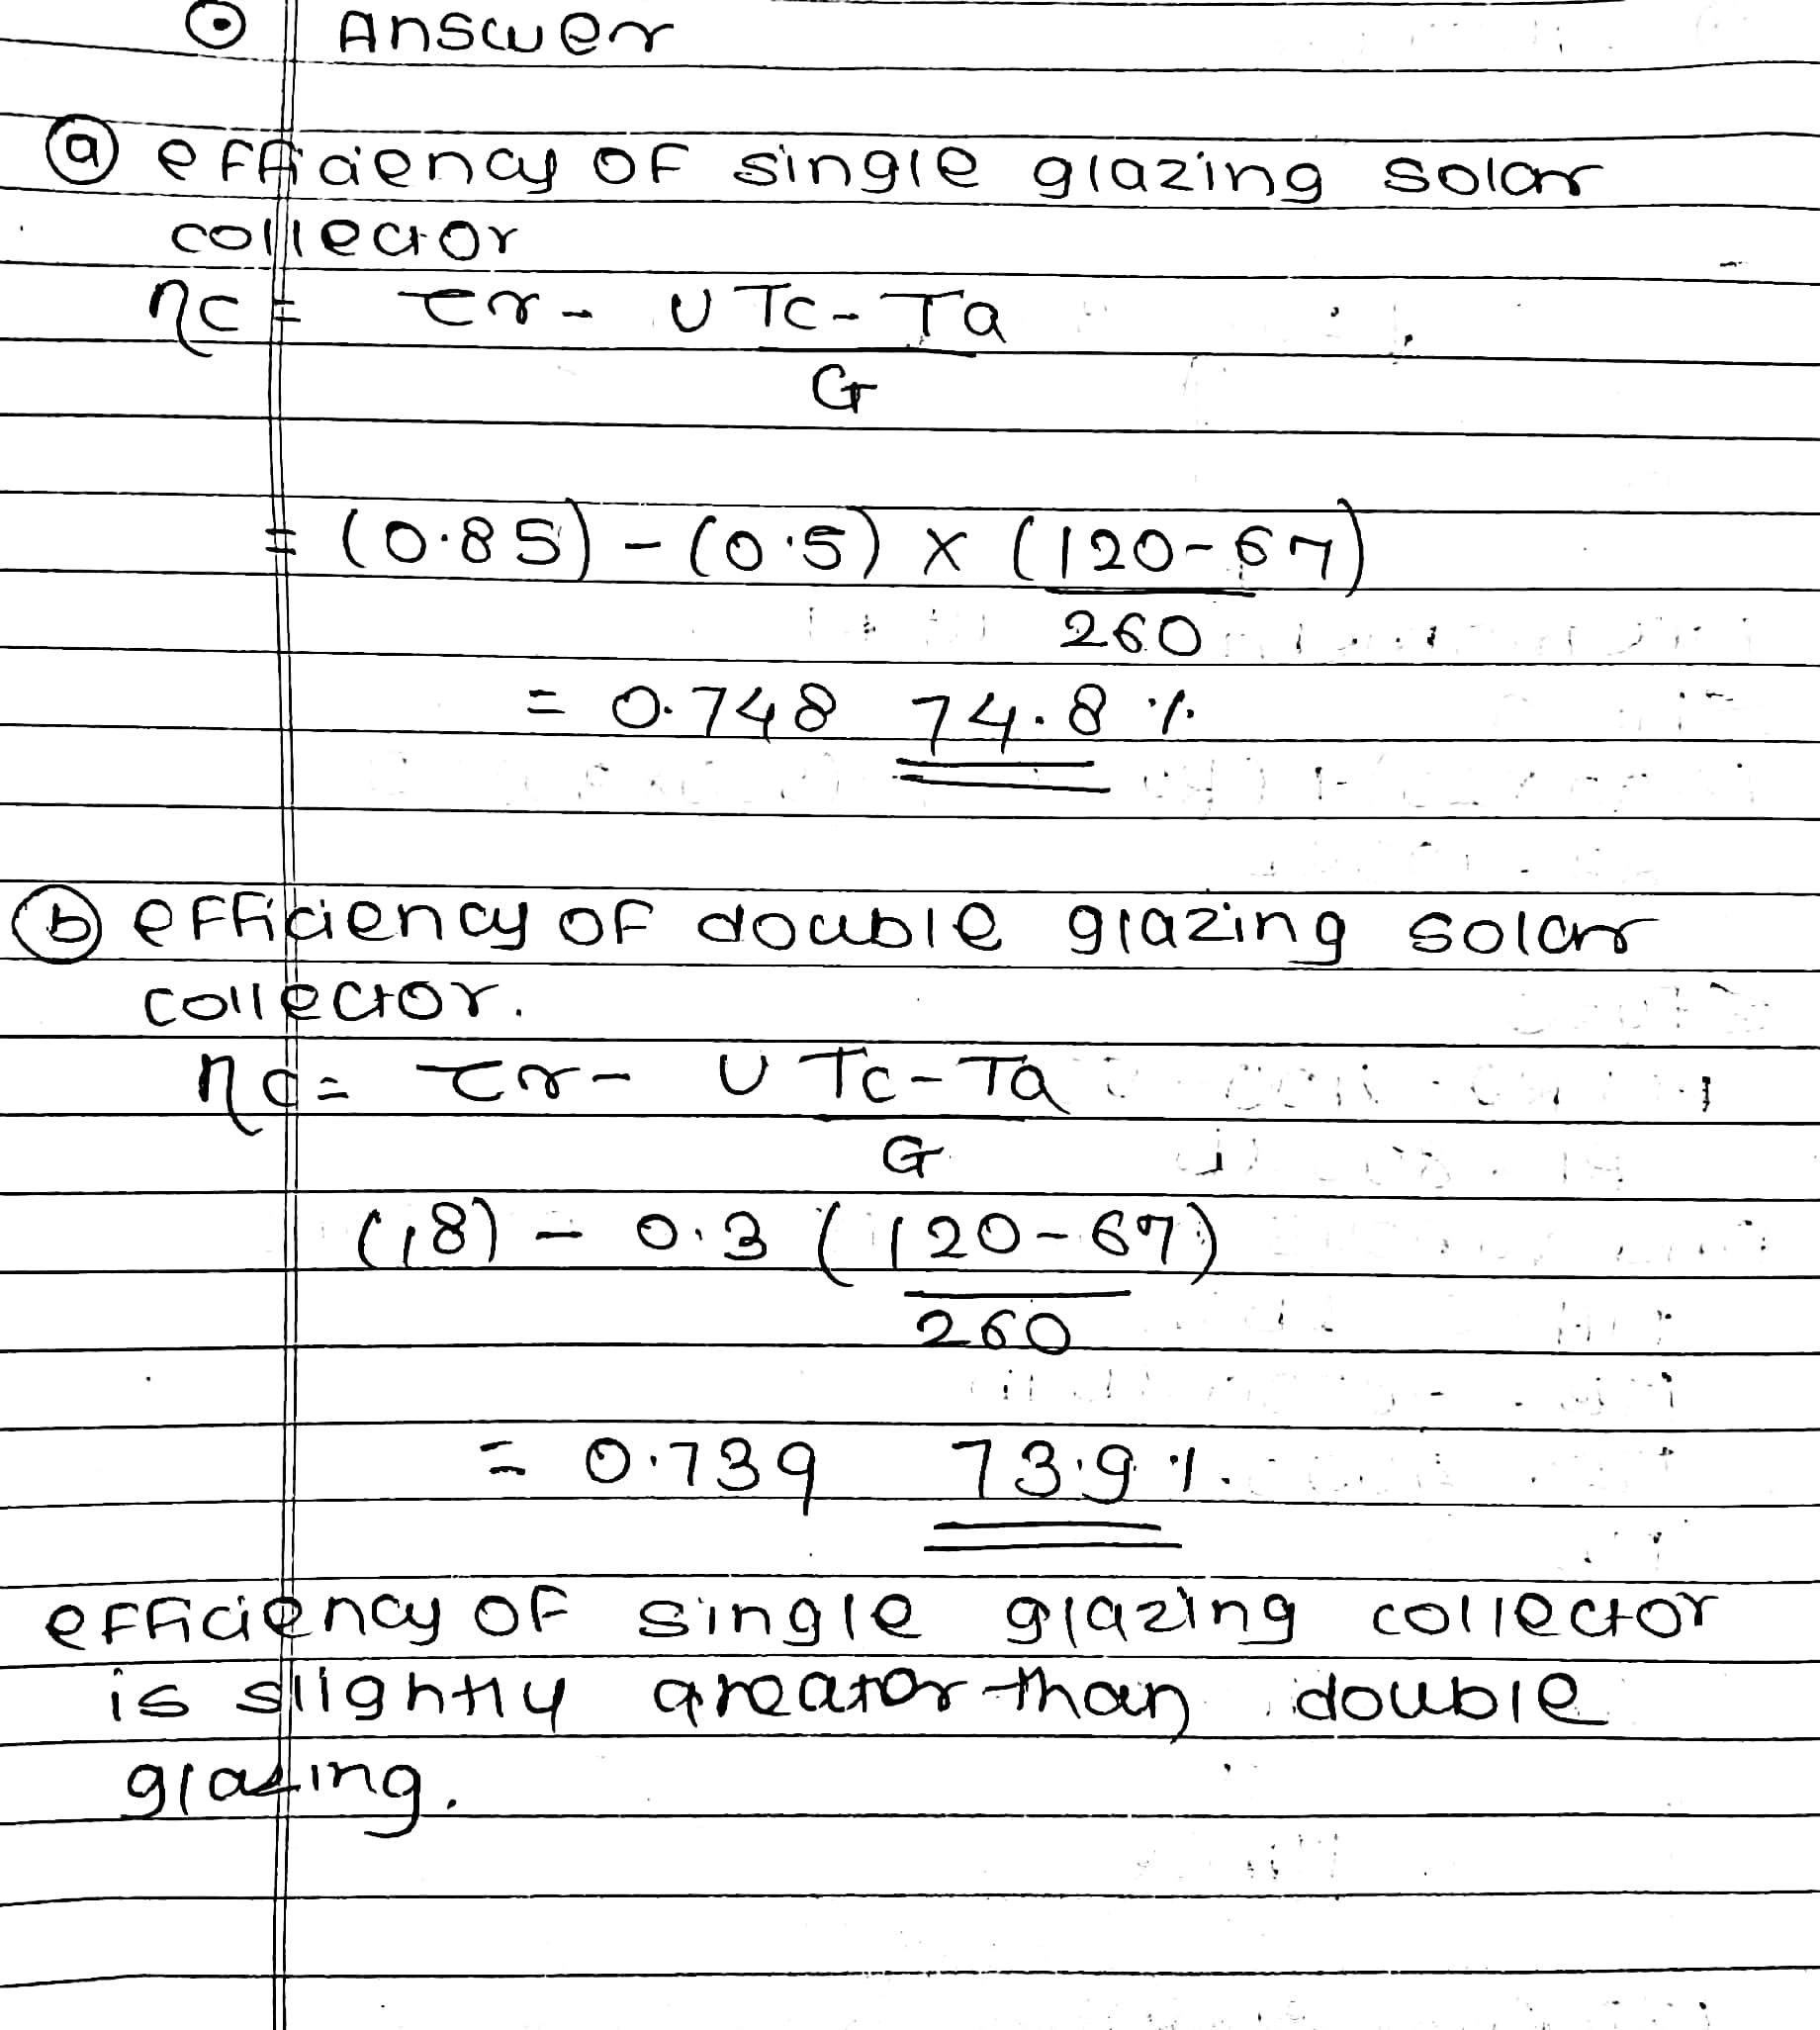 ⊙ Answer
ⓐ efficiency of single glazing solar
collector
ηc = τα - U Tc - Ta
G
= (0.85) - (0.5) x (120-67)
260
= 0.748 74.8 %
ⓑ efficiency of double glazing solar
collector.
ηc = τα - U Tc - Ta
G
(18) - 0.3 (120-67)
260
= 0.739 73.9 %
efficiency of single glazing collector
is slightly greater than double
glazing.